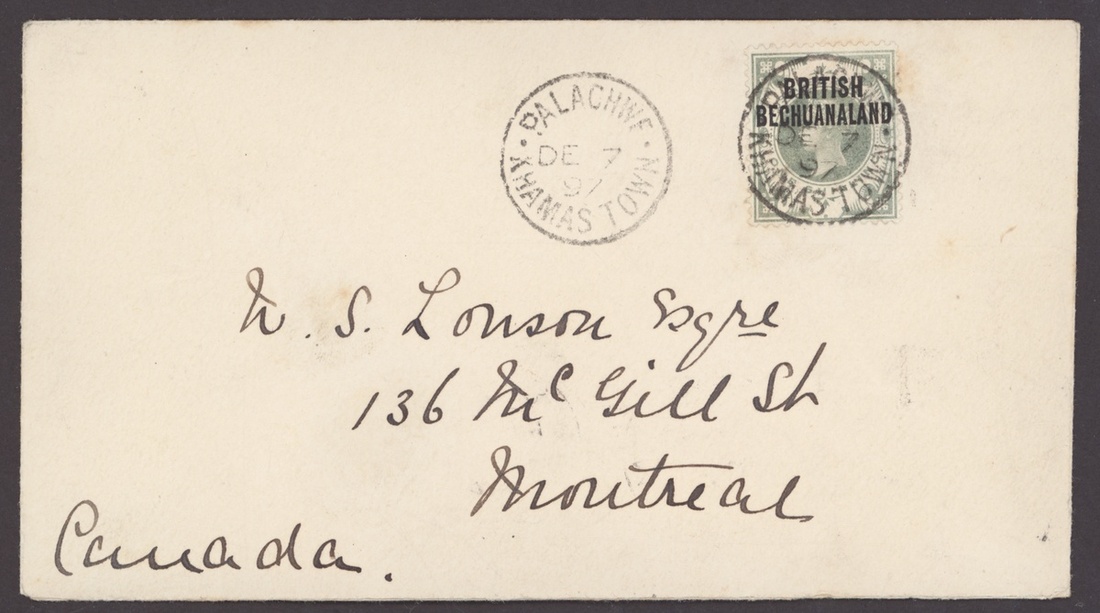 PALACHWE
DE 7
97
KHAMAS TOWN
BRITISH
BECHUANALAND
PALACHWE
DE 7
97
KHAMAS TOWN
W. S. Lonson Esqre
136 McGill St
Montreal
Canada.